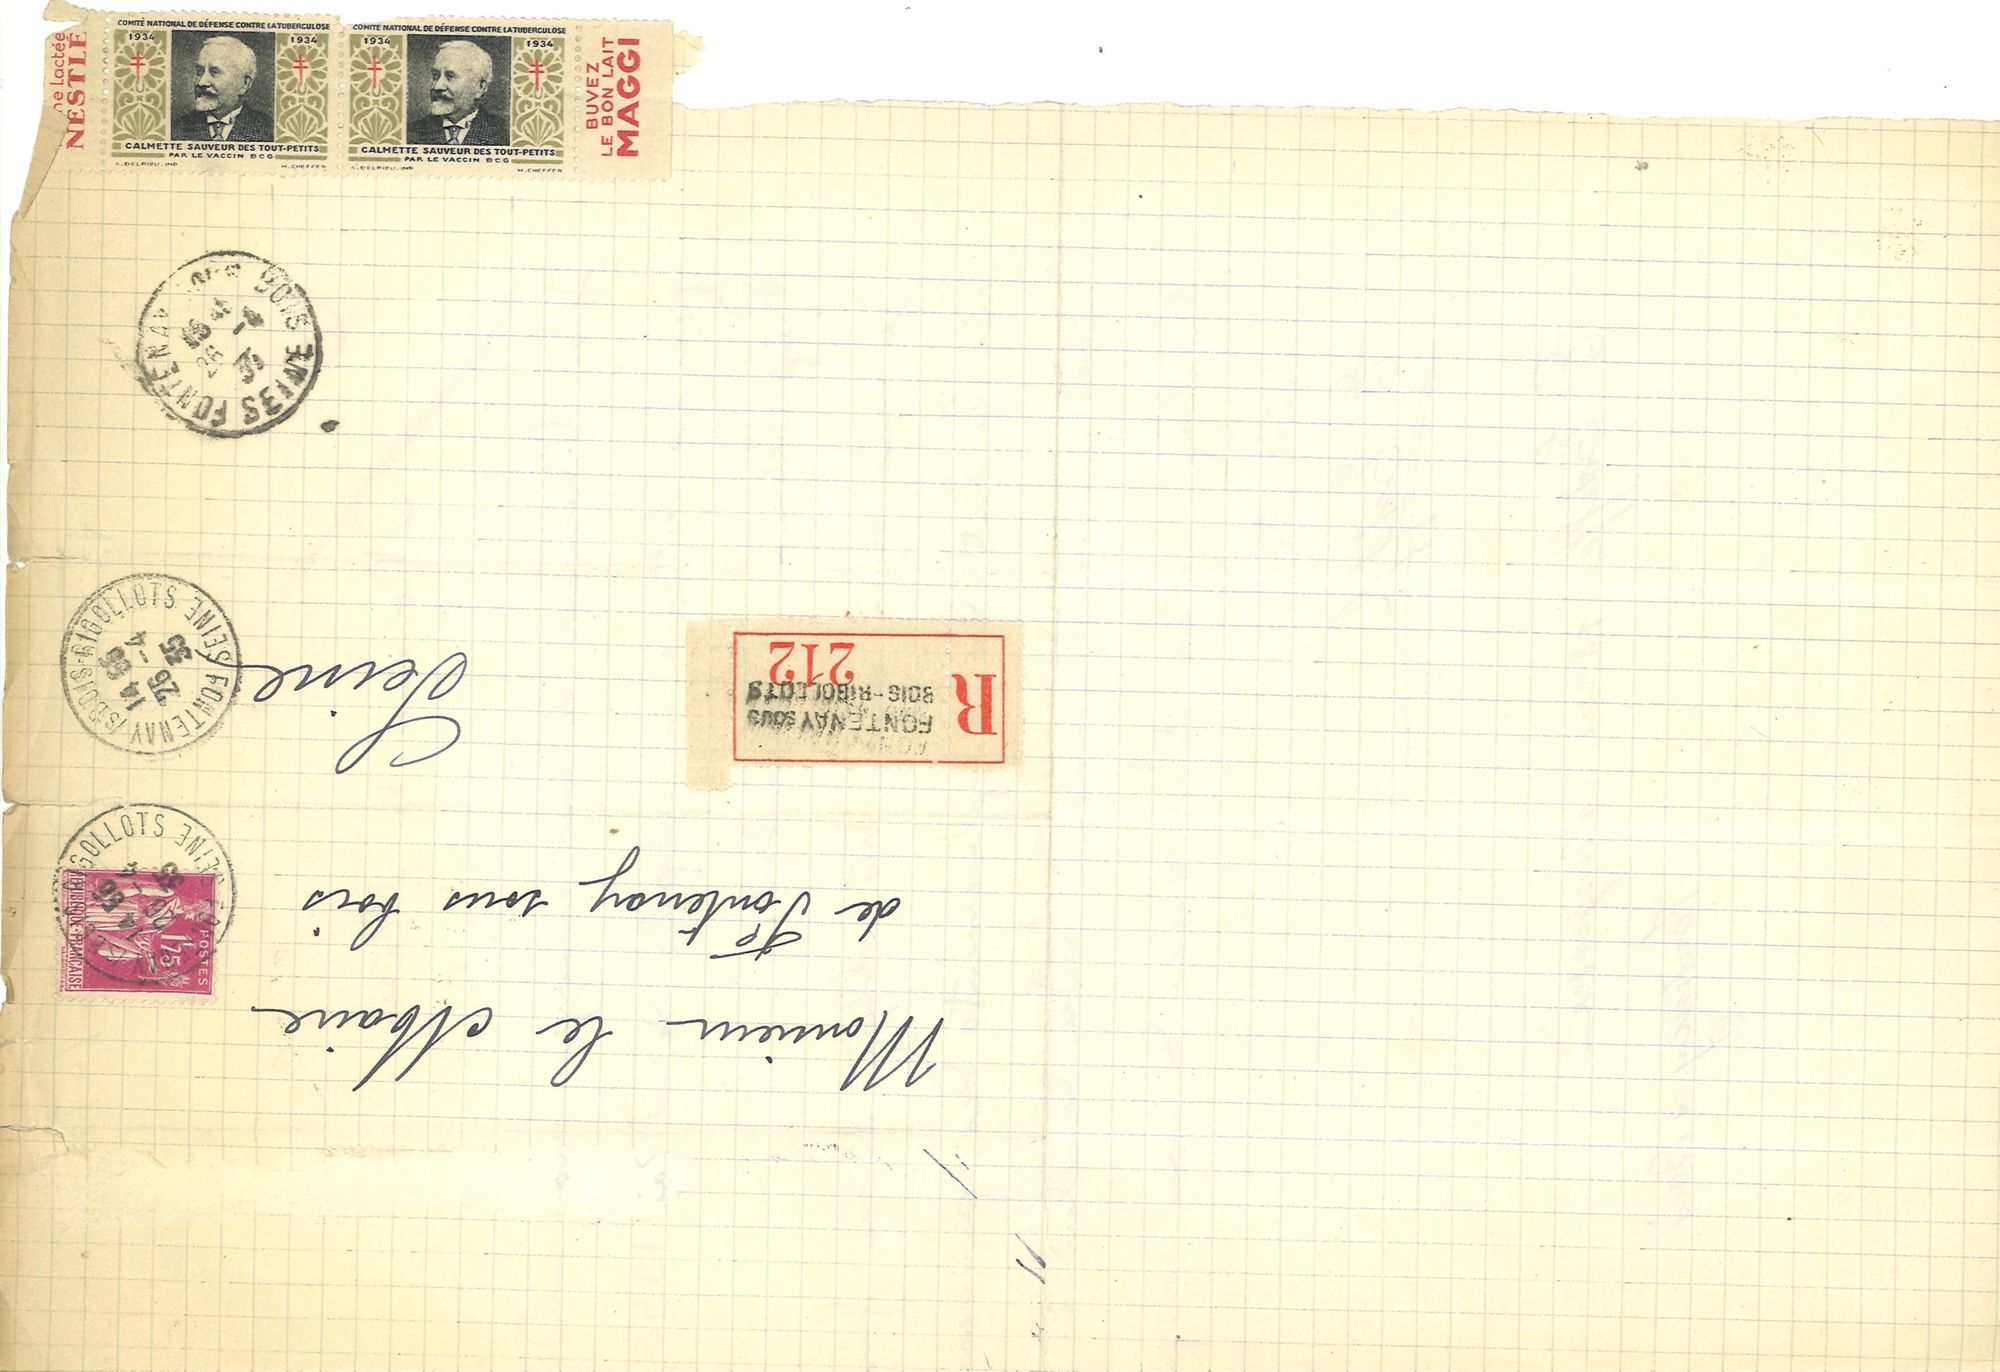 Farine Lactée
NESTLÉ
COMITÉ NATIONAL DE DÉFENSE CONTRE LA TUBERCULOSE
1934 1934
CALMETTE SAUVEUR DES TOUT-PETITS
PAR LE VACCIN BCG
A. DELRIEU. IMP H. CHEFFER
COMITÉ NATIONAL DE DÉFENSE CONTRE LA TUBERCULOSE
1934 1934
CALMETTE SAUVEUR DES TOUT-PETITS
PAR LE VACCIN BCG
A. DELRIEU. IMP H. CHEFFER
BUVEZ
LE BON LAIT
MAGGI
FONTENAY SOUS BOIS SEINE
26 -4
35
FONTENAY S/S BOIS-RIGOLLOTS SEINE
14
25 -4
35
GOLLOTS SEINE
POSTES
1F75
REPUBLIQUE FRANCAISE
R
FONTENAY SOUS
BOIS-RIGOLLOTS
212
Monsieur le Maire
de Fontenay sous bois
Seine